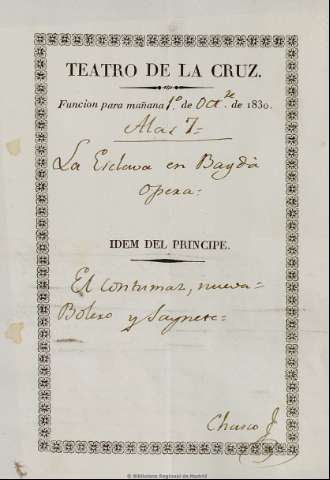 TEATRO DE LA CRUZ.
Funcion para mañana 1º de Octe. de 1830.
A las 7=
La Esclava en Bagdà
Opera=
IDEM DEL PRINCIPE.
El contumaz, nueva=
Bolero y Saynete=
Chasco J
© Biblioteca Regional de Madrid